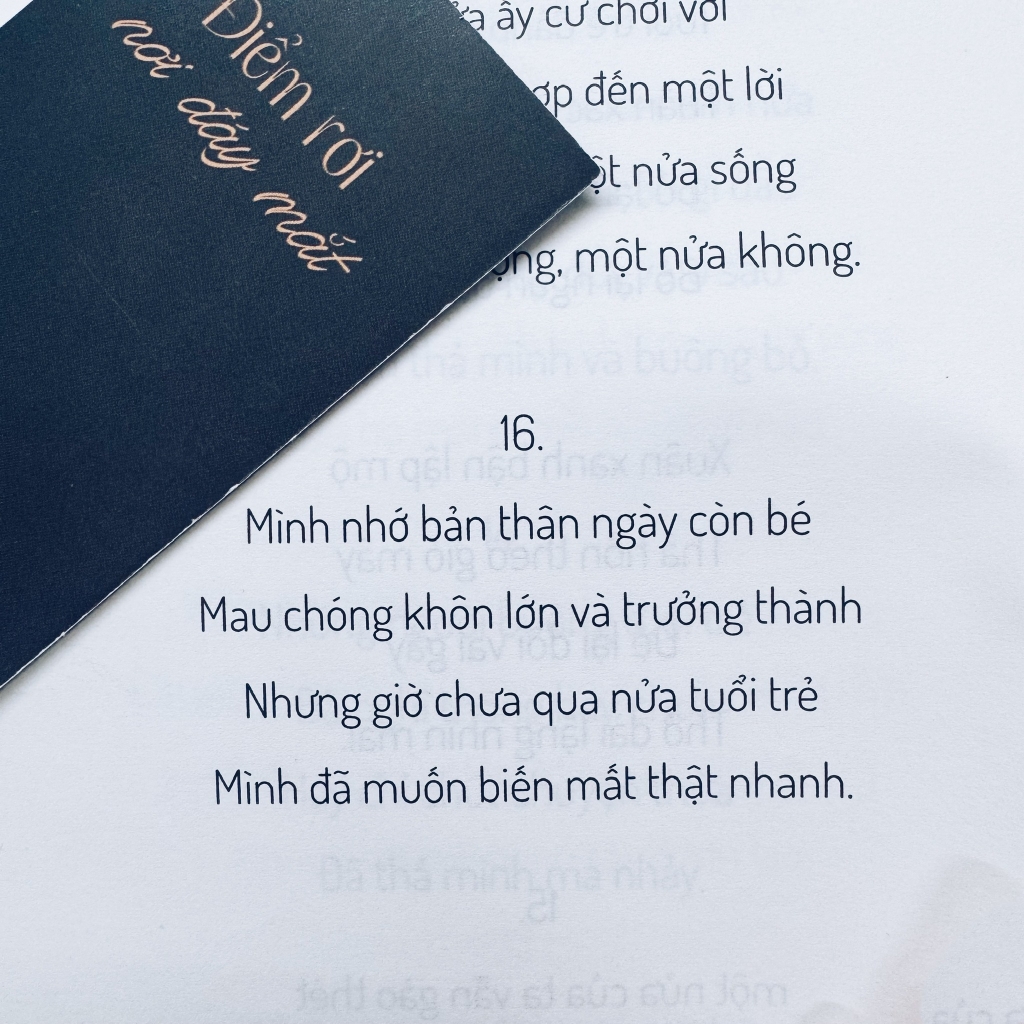 Điểm rơi
nơi đáy mắt
ấy cứ chơi vơi
đến một lời
nửa sống
một nửa không.
16.
Mình nhớ bản thân ngày còn bé
Mau chóng khôn lớn và trưởng thành
Nhưng giờ chưa qua nửa tuổi trẻ
Mình đã muốn biến mất thật nhanh.